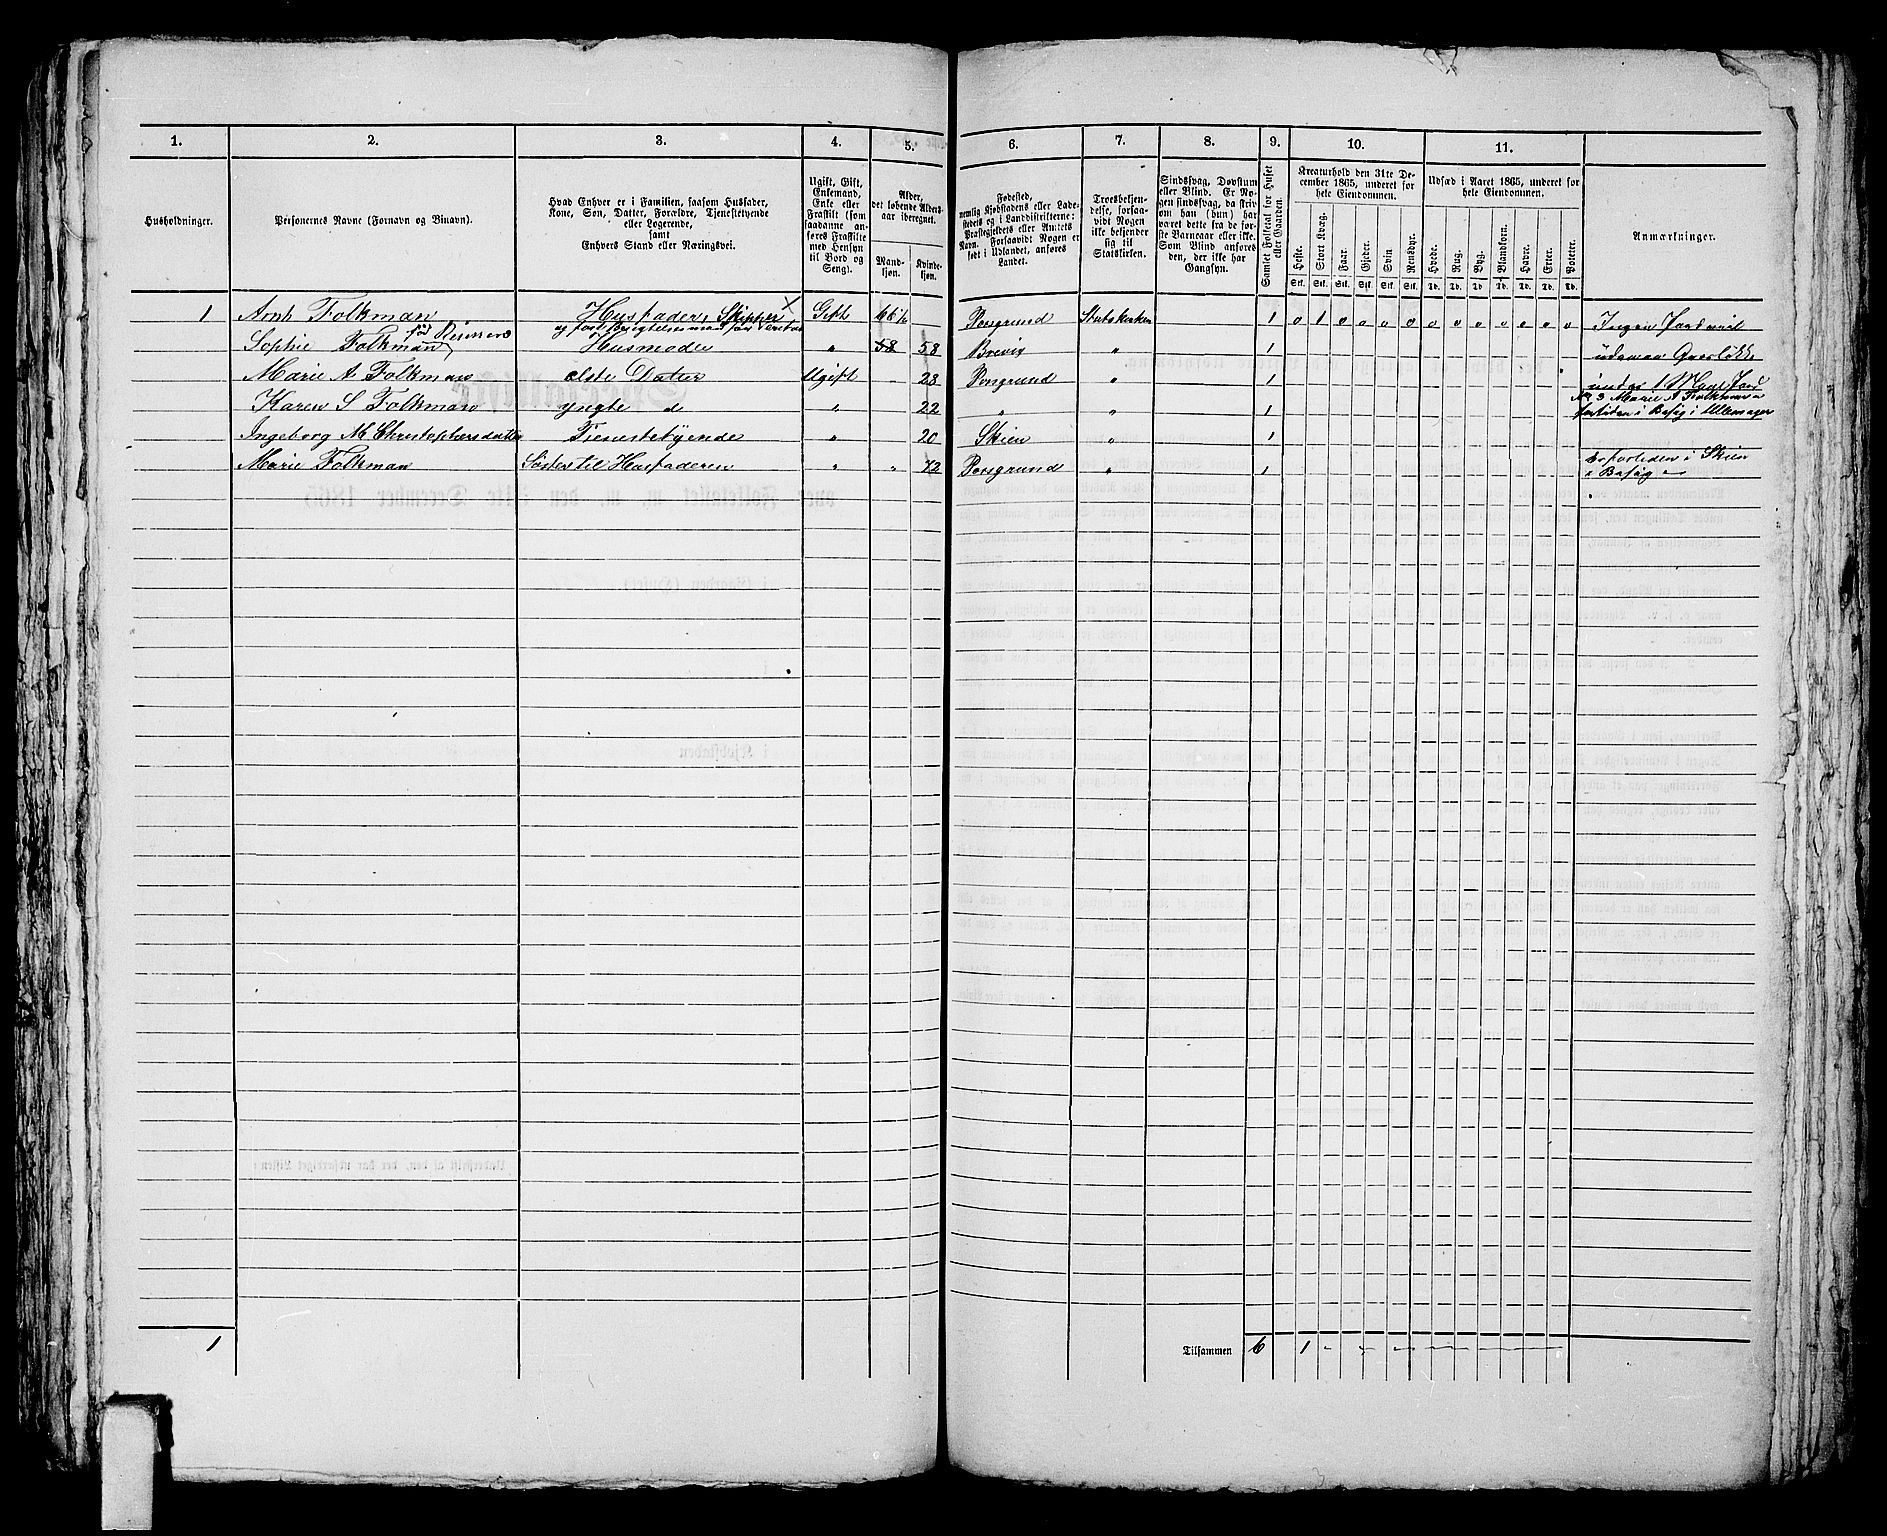 1. 2. 3. 4. 5. 6. 7. 8. 9. 10. 11.
Husholdninger.
Personernes Navne (Fornavn og Binavn).
Hvad Enhver er i Familien, saasom Husfader,
Kone, Søn, Datter, Forældre, Tjenestetyende
eller Logerende,
samt
Enhvers Stand eller Næringsvei.
Ugift, Gift,
Enkemand,
Enke eller
Fraskilt (som
saadanne an-
føres Fraskilte
med Hensyn
til Bord og
Seng).
Alder,
det løbende Alders-
aar iberegnet.
Mand-
kjøn.
Kvinde-
kjøn.
Fødested,
nemlig Kjøbstadens eller Lade-
stedets og i Landdistrikterne:
Præstegjeldets eller Amtets
Navn. Forsaavidt Nogen er
født i Udlandet, anføres
Landet.
Troesbekjen-
delse, forsaa-
vidt Nogen
ikke bekjender
sig til
Statskirken.
Sindssvag, Døvstum
eller Blind. Er No-
gen sindssvag, da skriv
om han (hun) har
været dette fra de før-
ste Barneaar eller ikke.
Som Blind anføres
den, der ikke har
Gangsyn.
Samlet Folketal for Huset
eller Gaarden.
Kreaturhold den 31te De-
cember 1865, underet for
hele Eiendommen.
Heste. Stort Kvæg. Faar. Gjeder. Svin Rensdyr.
Stk. Stk. Stk. Stk. Stk. Stk.
Udsæd i Aaret 1865, underet for
hele Eiendommen.
Hvede. Rug. Byg. Blandkorn. Havre. Erter. Poteter.
Td. Td. Td. Td. Td. Td. Td.
Anmærkninger.
1 Arnt Folkman Husfader, Skipper Gift 66 ½ Porsgrund Statskirken 1 0 1 0 0 0 0 0 0 0 0 0 0 0 Ingen
født
Sophie Folkman Husmoder " 58 58 Brevig " 1
Marie A Folkman elste Datter Ugift - 23 Porsgrund " 1 under 1
Karen S Folkman yngte d " 22 " " 1 No 3 Marie A Folkman
Ingeborg M Christophersdatter Tienestetyende " 20 Skien " 1
Marie Folkman Søster til Husfaderen " " 72 Porsgrund " 1 i Skien
i Besøg
1 Tilsammen 6 1